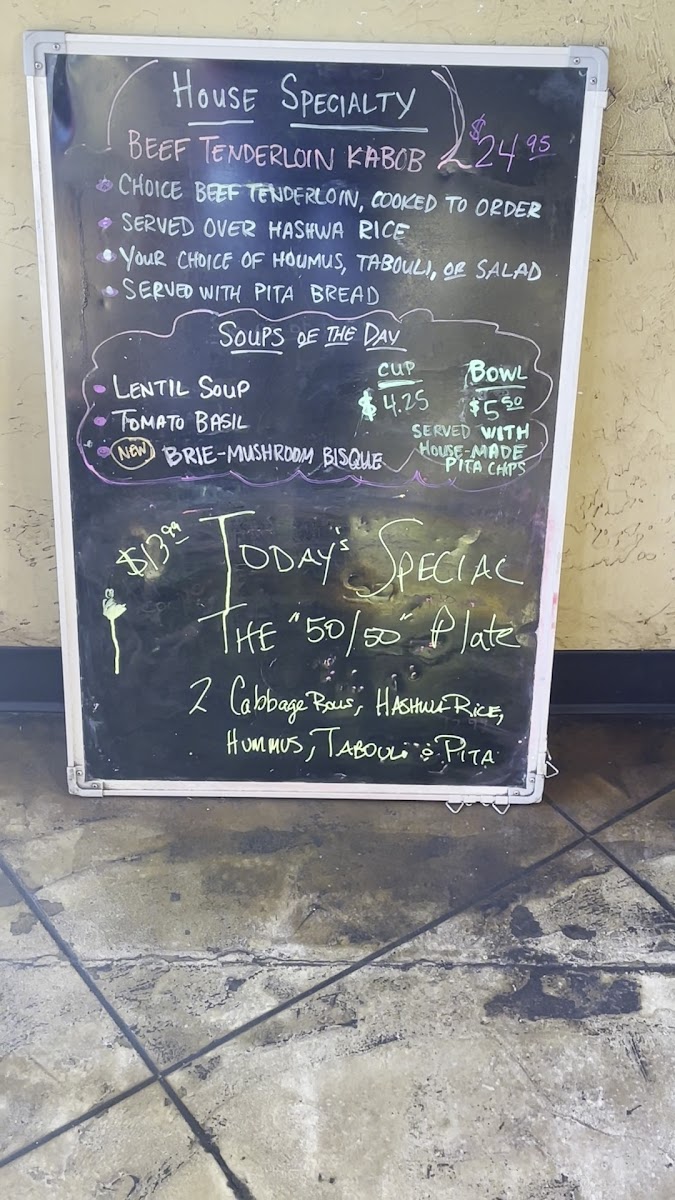 HOUSE SPECIALTY
BEEF TENDERLOIN KABOB $24.95
CHOICE BEEF TENDERLOIN, COOKED TO ORDER
SERVED OVER HASHWA RICE
YOUR CHOICE OF HOUMUS, TABOULI, OR SALAD
SERVED WITH PITA BREAD
SOUPS OF THE DAY
CUP BOWL
LENTIL SOUP $4.25 $5.50
TOMATO BASIL
SERVED WITH
HOUSE-MADE
PITA CHIPS
NEW BRIE-MUSHROOM BISQUE
$13.99 TODAY'S SPECIAL
THE "50/50" Plate
2 Cabbage Rolls, HASHWA RICE,
HUMMUS, TABOULI & PITA